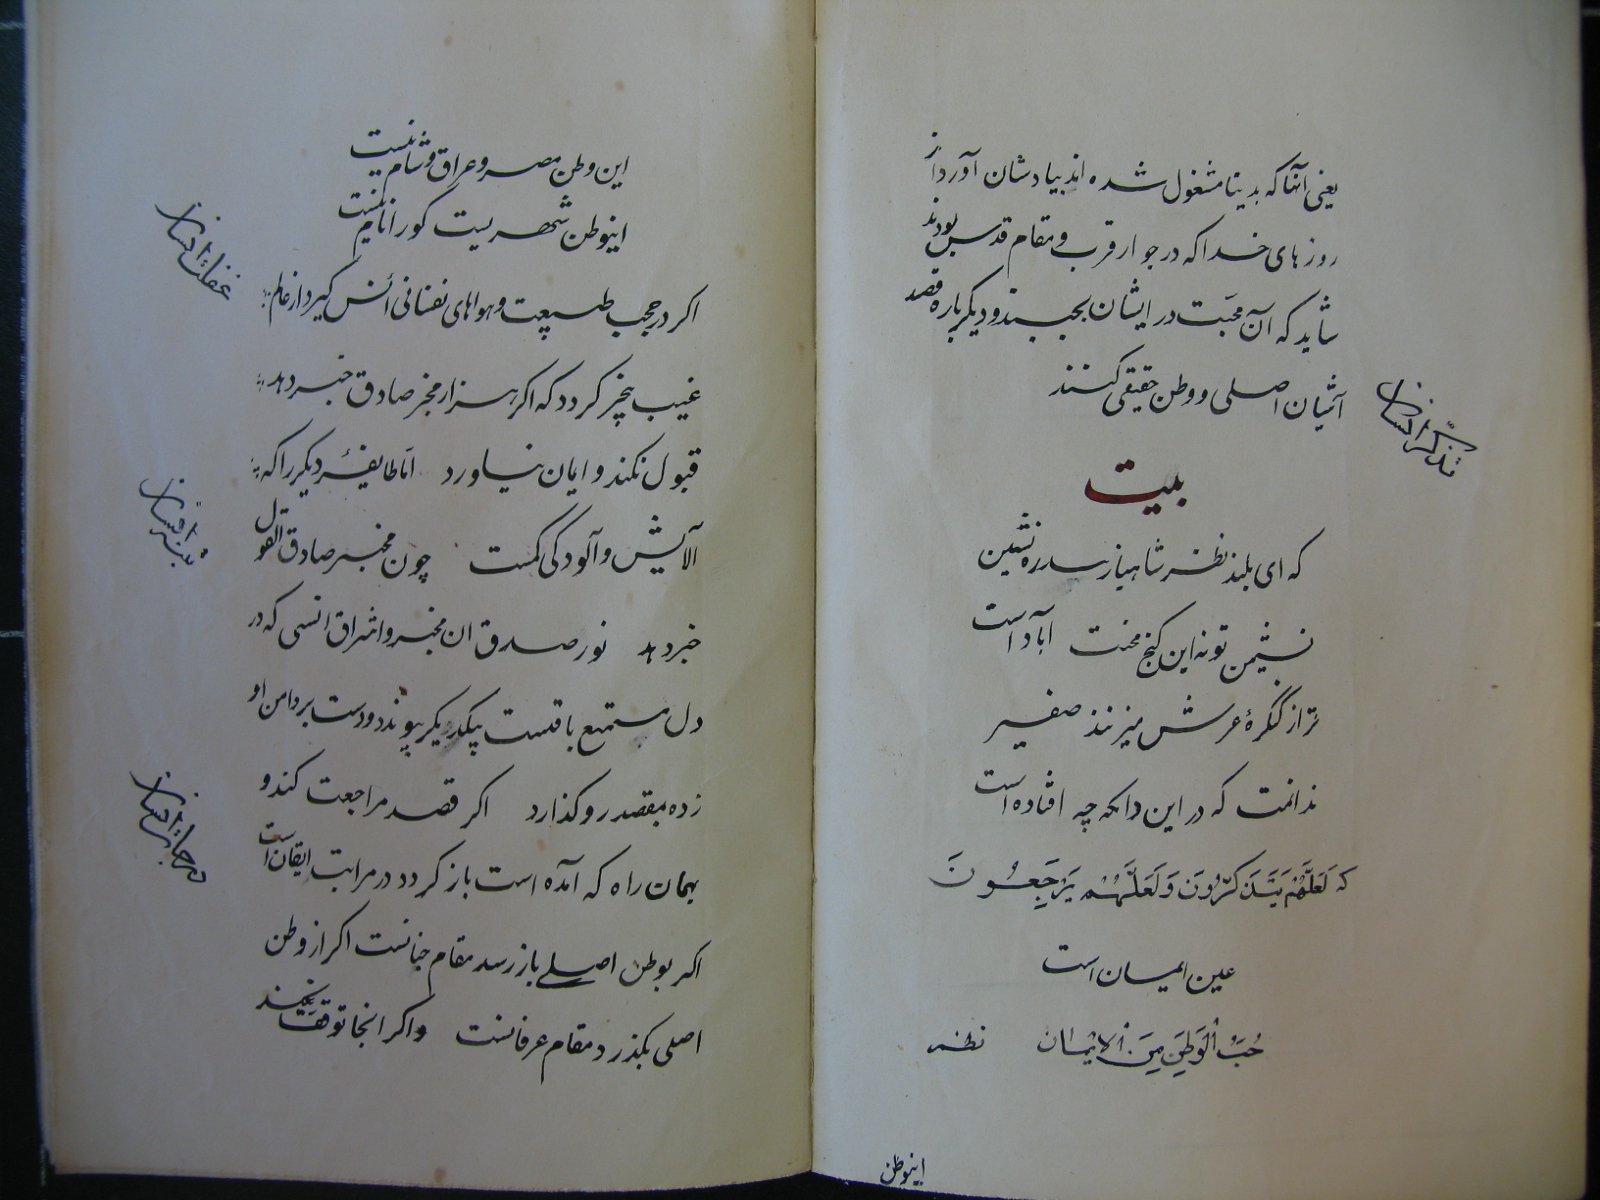 یعنی آنها که بدینا مشغول شده اند بیادشان آورد از
روزهای خدا که در جوار قرب و مقام قدس بودند
شاید که آن محبّت در ایشان بجنبند و دیگر باره قصد
آشیان اصلی و وطن حقیقی کنند
تذکّر انسان
بیت
که ای بلند نظر شاهباز سدره نشین
نشیمن تو نه این کنج محنت آباد است
ترا از کنگرهٔ عرش میزنند صفیر
ندانمت که در این دامکه چه افتاده است
که لَعَلَّهُمْ یَتَذَکَّرُونَ وَ لَعَلَّهُمْ یَرْجِعُونَ
عین ایمان است
حُبُّ الْوَطَنِ مِنَ الْایْمَان نظم
اینوطن
این وطن مصر و عراق و شام نیست
اینوطن شهریست کورا نام نیست
غفلت انسان
اکر در حجب طبیعت و هواهای نفسانی انس کیرد از عالم
غیب بیخبر کردد که اکر هزار مخبر صادق خبر دهد
قبول نکند و ایمان نیاورد امّا طایفهٔ دیکر را که
الایش و آلودکی کمست چون مخبر صادق القول
خبر دهد نور صدق ان مخبر و اشراق انسی که در
دل مستمع باقیست بیکدیکر پیوندد و دست بر دامن او
زده بمقصد رو کذارد اکر قصد مراجعت کند و
درجات انسان
بهمان راه که آمده است باز کردد در مراتب ایقان است
اکر بوطن اصلی باز رسد مقام جنانست اکر از وطن
اصلی بکذرد مقام عرفانست و اکر انجا توقف نکند